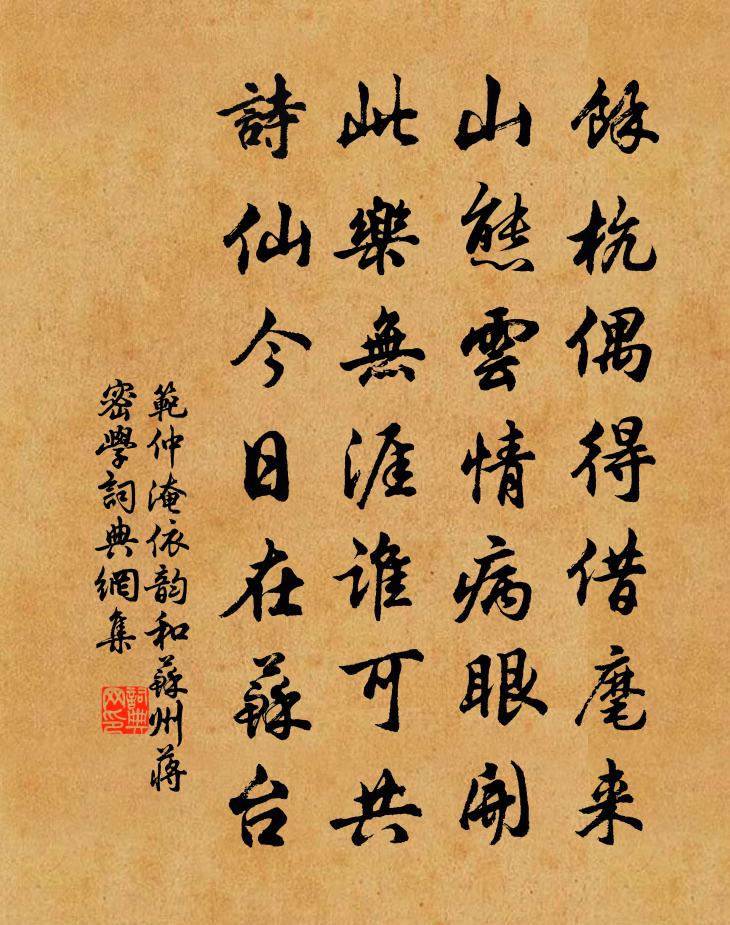 餘杭偶得借麾来
山態雲情病眼開
此樂無涯誰可共
詩仙今日在蘇台
範仲淹依韵和蘇州蔣
密學詞典網集
詞典
网印